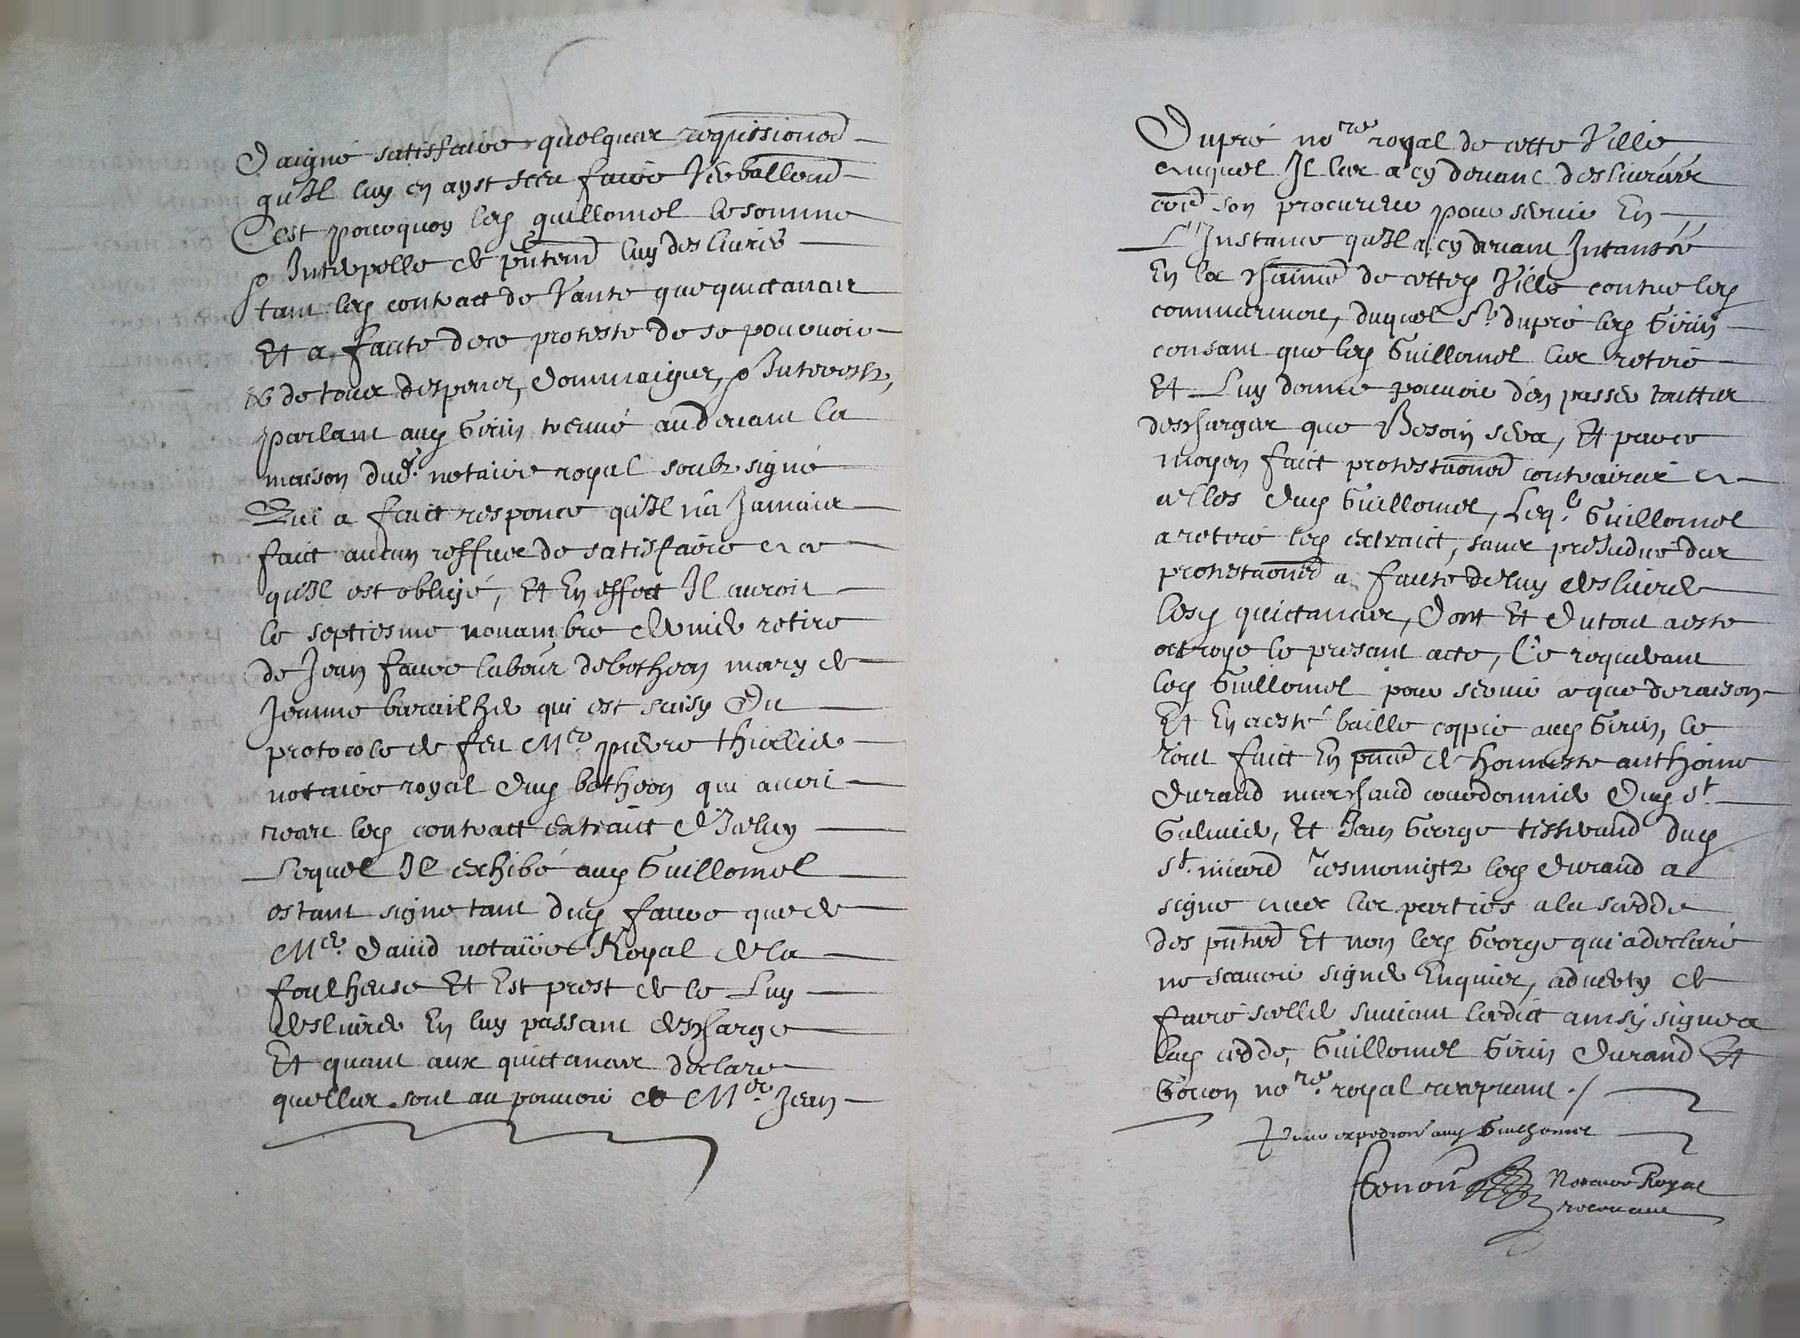 Daigné satisfaire quelques requisitions
qu'Il luy en ayt sceu faire Verballemt
C'est pourquoy led guillomel le somme
Interpelle de luy deslivrer
tant led contract de Vante que quittances
Et a faute dece proteste de se pourvoir
et de tous despens, dommaiges, Interestz,
parlant aud Girin treuvé audevant la
maison dud. notaire royal soubz signé
Qui a faict responce qu'Il n'a Jamais
faict aucun reffus de satisfaire a ce
qu'Il est obligé, Et En effect Il auroit
le septiesme novambre dernier retiré
de Jean faure labour. de botheon mary de
Jeanne barailher qui est saisy Du
protocole de feu Mre. pierre thiollier
notaire royal dud botheon qui avoit
receu led contract extraict D'Iceluy
Lequel Il exhibé aud Guillomel
estant signe tant dud faure que de
Mre. David notaire Royal de la
foulhouse Et Est prest de le Luy
deslivrer En luy passant descharge
Et quant aux quittances declare
quelles sont au pouvoir de Mre. Jean
Dupré nore. royal de cette Ville
auquel Il les a cy devant deslivrées
son procureur pour servir En
L'Instance qu'Il a cy devant Intantée
En la de cetted Ville contre led
duquel Sr. dupré led Girin
consant que led Guillomel les retire
Et Luy donne pouvoir d'en passer touttes
descharges que Besoin sera, Et parce
moyen faict protestaons contraires a
celles dud Guillomel, Leql. Guillomel
a retiré led extraict, sans prejudice des
protestaons a faute de luy deslivrer
lesd quittances, Dont Et du tout a esté
octroye le presant acte, Ce requerant
led Guillomel pour servir a que de raison
Et En a esté baillé coppie aud Girin, le
Tout faict En pnce de honneste anthoine
Durand marchand courdonnier dud St.
Galmier, Et Jean George tisserand dud
St. Tesmoingtz led Durand a
signe avec les parties a la sedde
des pntes Et non led George qui a declaré
ne scavoir signer Enquis, adverty de
faire seller suivant l'edict ainsy signe a
lad cedde, Guillomel Girin Durand Et
Gonon nore. royal recepvant ./
aud Guilhomel
Gonon Notaire Royal
recevant